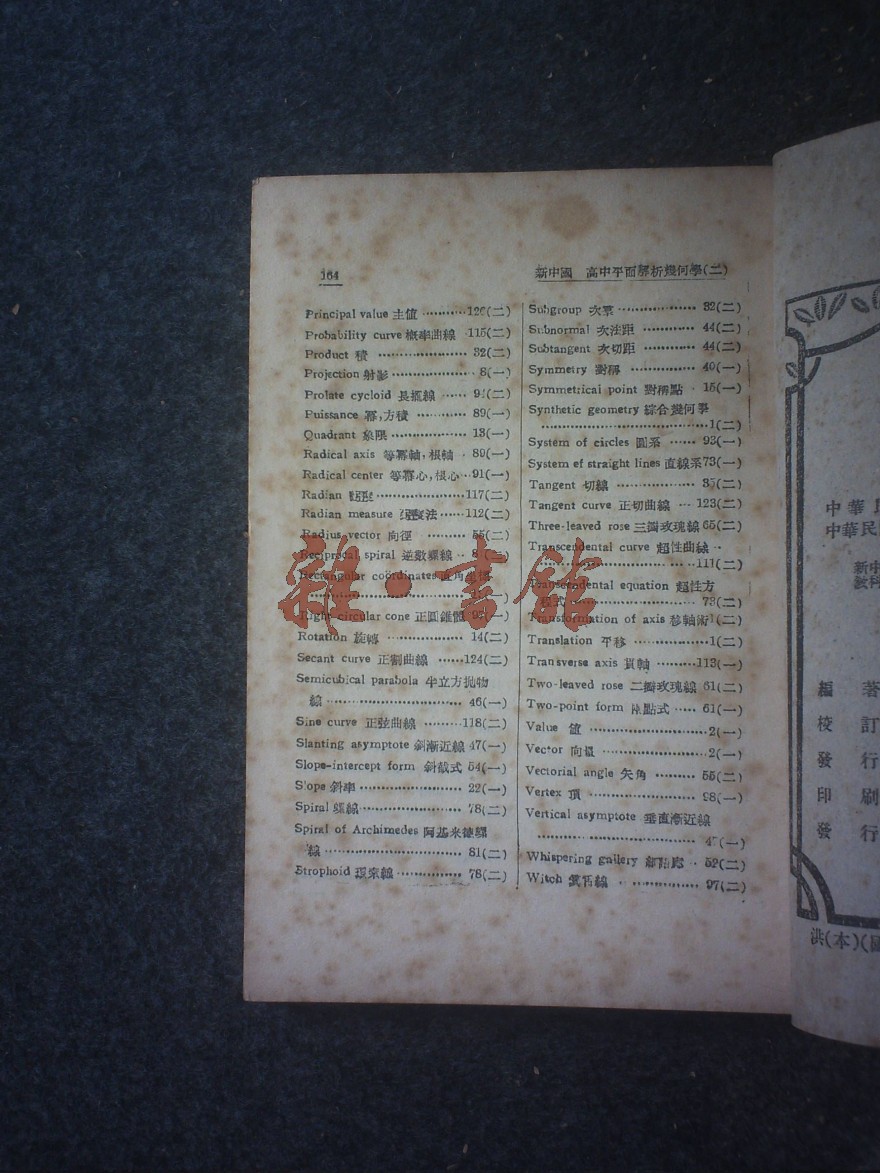 164
新中國 高中平面解析幾何學(二)
Principal value 主値 ··········126(二)
Probability curve 概率曲線 ·115(二)
Product 積 ················ 32(二)
Projection 射影 ···················· 8(一)
Prolate cycloid 長擺線 ····· 9(二)
Puissance 冪,方積 ············ 89(一)
Quadrant 象限 ················· 13(一)
Radical axis 等冪軸,根軸 · 89(一)
Radical center 等冪心,根心 ··91(一)
Radian ····················117(二)
Radian measure 法 ······112(二)
Radius vector 向徑 ········· 55(二)
Reciprocal spiral 逆數螺線 ··
Rectangular coördinates 直角坐標
Right circular cone 正圓錐體
Rotation 旋轉 ················ 14(二)
Secant curve 正割曲線 ······124(二)
Semicubical parabola 半立方拋物
線 ······························ 46(一)
Sine curve 正弦曲線 ·········118(二)
Slanting asymptote 斜漸近線 47(一)
Slope-intercept form 斜截式 54(一)
Slope 斜率 ···················· 22(一)
Spiral 螺線 ···················· 78(二)
Spiral of Archimedes 阿基米德螺
線 ······························ 81(二)
Strophoid 環索線 ·············· 78(二)
Subgroup 次羣 ················ 32(二)
Subnormal 次法距 ············ 44(二)
Subtangent 次切距 ············ 44(二)
Symmetry 對稱 ················ 40(一)
Symmetrical point 對稱點 · 15(一)
Synthetic geometry 綜合幾何學
····································1(二)
System of circles 圓系 ······ 93(一)
System of straight lines 直線系73(一)
Tangent 切線 ·················· 35(二)
Tangent curve 正切曲線 ··· 123(二)
Three-leaved rose 三瓣玫瑰線 65(二)
Transcendental curve 超性曲線 ··
································ 111(二)
Transcendental equation 超性方
程式 ························· 73(二)
Transformation of axis 移軸術 1(二)
Translation 平移 ···············1(二)
Transverse axis 貫軸 ·········113(一)
Two-leaved rose 二瓣玫瑰線 61(二)
Two-point form 兩點式 ····· 61(一)
Value 値 ·························2(一)
Vector 向量 ·····················2(一)
Vectorial angle 矢角 ········· 55(二)
Vertex 頂 ······················· 98(一)
Vertical asymptote 垂直漸近線
································ 47(一)
Whispering gallery ·· 52(二)
Witch ············ 97(二)
雜·書館
中華
中華民
新中
教科
編 著
校 訂
發 行
印 刷
發 行
洪(本)(國